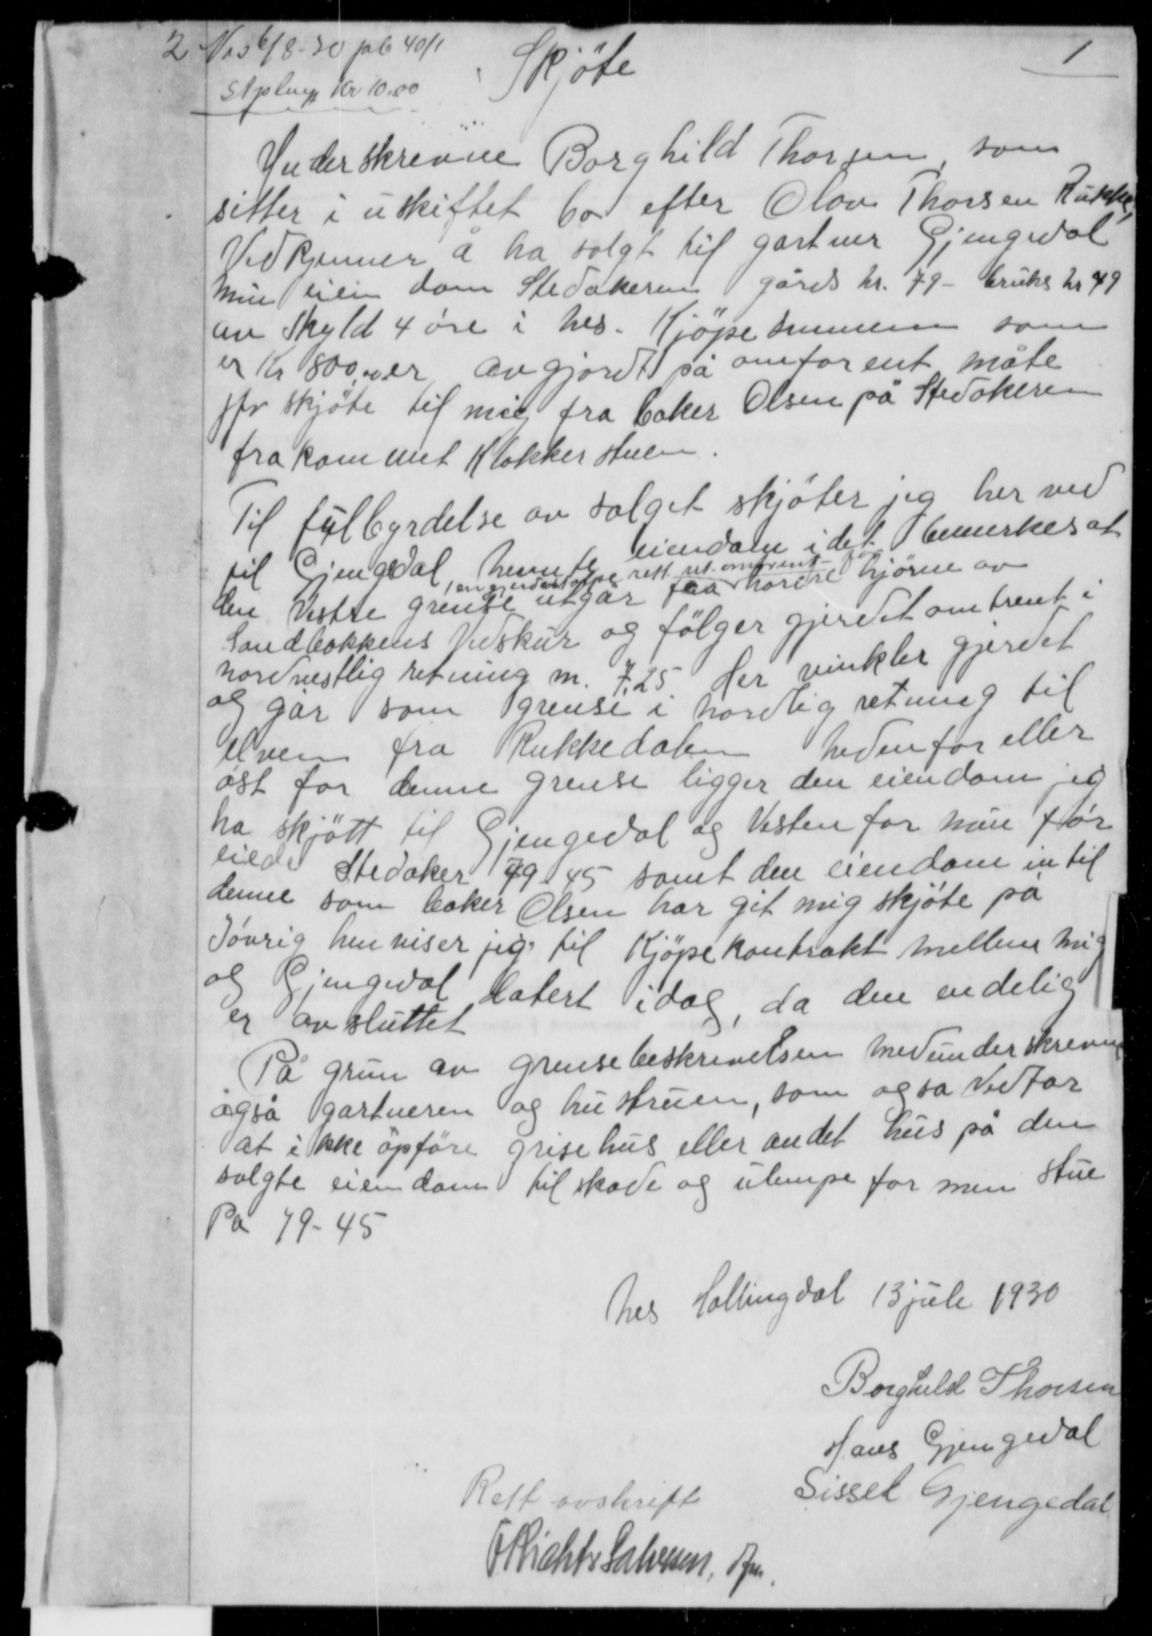 2
1
Stpling Kr 10.00
Skjöte
Underskrevne Borghild Thorsen, som
sitter i uskiftet bo efter Olav Thorsen Rukke,
Vedkjenner å ha solgt til gartner Gjengedal
min eien dom Stedakeren gårds nr. 79 - bruks nr 49
av skyld 4 öre i nes. Kjöpesummen som
er Kr 800,00 er avgjordt på omforent måte
jfr skjöte til mig fra baker Olsen på Stedakeren
frakommet Klokkerstuen.
Til fullbyrdelse av salget skjöter jeg her ved
til Gjengedal nevnte eiendom idet bemerkes at
den Vestre grense utgår fra nordre hjörne av
Sandbakkens Vedskur og fölger gjerdet omtrent i
nordvestlig retning m. 7,25 Her vinkler gjerdet
og går som grense i nordlig retning til
elven fra Rukkedalen nedenfor eller
öst for denne grense ligger den eiendom jeg
ha skjött til Gjengedal og Vesten for min för
eiede Stedaker 79-45 samt den eiendom intil
denne som baker Olsen har git mig skjöte på
Iövrig henviser jeg til Kjöpekontrakt mellem mig
og Gjengedal datert idag, da den endelig
er avsluttet
På grun av grensebeskrivelsen medunderskrevne
også gartneren og hustruen, som ogsa Vedtar
at ikke opföre grisehus eller andet hus på den
solgte eiendom til skade og ulempe for men stue
Pa 79-45
Nes Hallingdal 13 juli 1930
Borghild Thorsen
Hans Gjengedal
Sissel Gjengedal
Rett avskrift